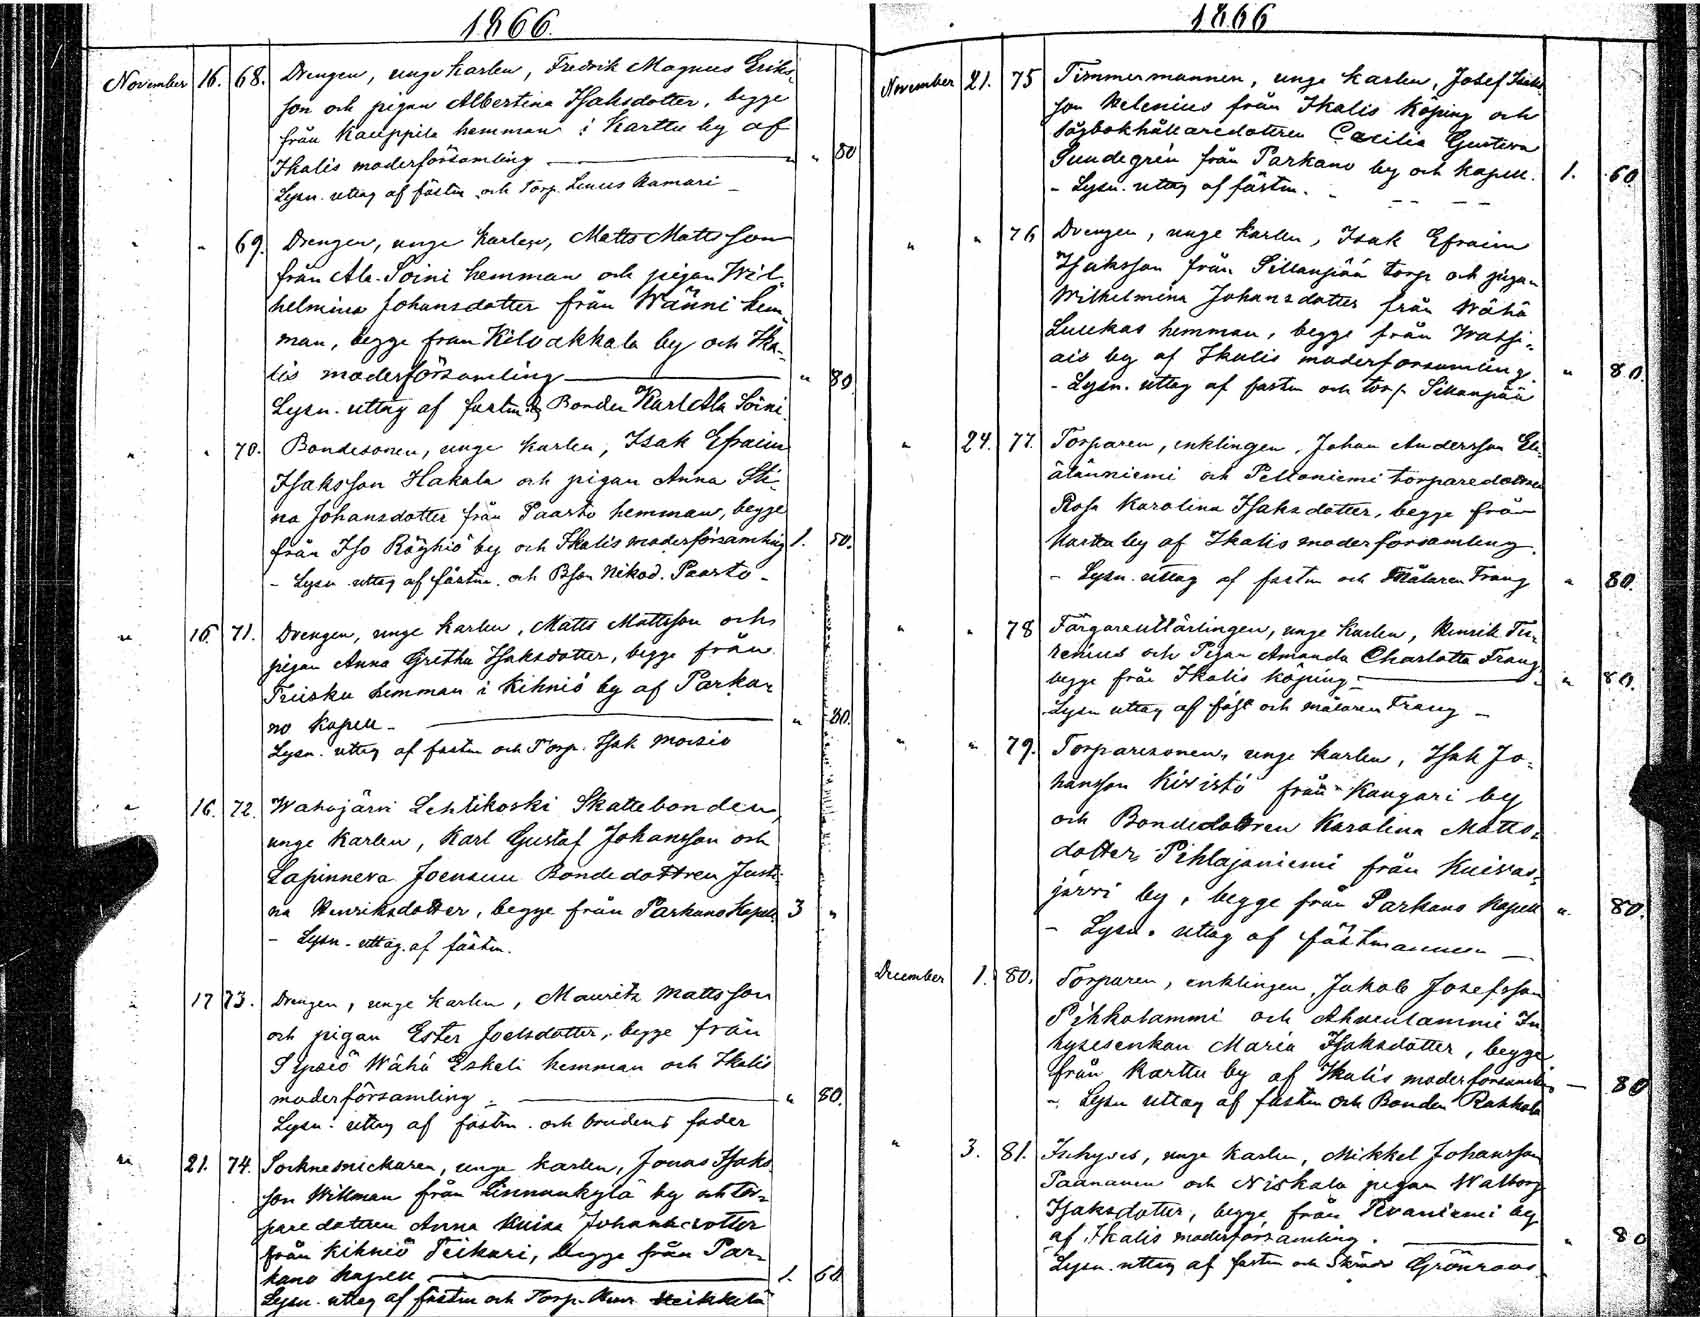 1866.
November 16. 68. Drengen, unge karlen, Fredrik Magnus Eriks-
son och pigan Albertina Isaksdotter, begge
från Kauppila hemman i Karttu by af
Ikalis moderförsamling — " 80
Lysn. uttag af fästm. och Torp. Linus Kamari –
" " 69. Drengen, unge karlen, Matts Mattsson
från Ala-Soini hemman och pigan Wil-
helmina Johansdotter från Wänni hem-
man, begge från Kilvakkala by och Ika-
lis moderförsamling — " 80.
Lysn. uttag af fästm. Bonden Karl Ala Soini
" " 70. Bondesonen, unge karlen, Isak Efraim
Isaksson Hakala och pigan Anna Sti-
na Johansdotter från Paarto hemman, begge
från Iso Röyhiö by och Ikalis moderförsamling 1. 50.
– Lysn. uttag af fästm. och Bson Nikod. Paarto –
" 16. 71. Drengen, unge karlen, Matts Mattsson och
pigan Anna Gretha Isaksdotter, begge från
hemman i Kihniö by af Parka-
no kapell – " 80.
Lysn. uttag af fästm och Torp. Isak Moisio
" 16. 72. Wahojärvi Lehtikoski Skattebonden,
unge karlen, Karl Gustaf Johansson och
Lapinneva Joensuu Bondedottren Justi-
na Henriksdotter, begge från Parkano Kapell 3 "
– Lysn. uttag. af fästm.
" 17 73. Drengen, unge karlen, Mauritz Mattsson
och pigan Ester Joelsdotter, begge från
Sipsiö Wähä Eskeli hemman och Ikalis
moderförsamling. — " 80.
Lysn. uttag af fästm. och brudens fader
" 21. 74. Socknesnickaren, unge karlen, Jonas Isaks-
son Willman från Linnankylä by och tor-
paredottren Anna Kaisa Johansdotter
från Kihniö Teikari, begge från Par-
kano kapell — 1. 60
Lysn. uttag af fästm och Torp. Heikkilä
1866
November 21. 75 Timmermannen, unge karlen, Josef Isaks-
son Helenius från Ikalis köping och
sågbokhållaredottren Cæcilia Gustava
Sundegrén från Parkano by och kapell. 1. 60.
– Lysn. uttag af fästm.
" " 76 Drengen, unge karlen, Isak Efraim
Isaksson från Sillanpää torp och pigan
Wilhelmina Johansdotter från Wähä
Luukas hemman, begge från Watsi-
ais by af Ikalis moderforsamling. " 80.
– Lysn. uttag af fästm och torp. Sillanpää
" 24. 77. Torparen, enklingen, Johan Andersson
och Peltoniemi torparedottren
Rosa Karolina Isaksdotter, begge från
Karttu by af Ikalis moderforsamling.
– Lysn. uttag af fästm och Målaren Trang " 80.
" " 78 Färgarelärlingen, unge karlen, Henrik
och Pigan Amanda Charlotta Trang,
begge från Ikalis köping – " 80.
Lysn uttag af fäst och målaren Trang –
" " 79. Torparesonen, unge karlen, Isak Jo-
hansson Kivistö från Kangari by
och Bondedottren Karolina Matts-
dotter Pihlajaniemi från Kuivas-
järvi by, begge från Parkano kapell " 80.
– Lysn. uttag af fästmannen –
December 1. 80. Torparen, enklingen, Jakob Josefsson
Pihkolammi och Ahvenlammi In-
hysesenkan Maria Isaksdotter, begge
från Karttu by af Ikalis moderforsamling — 80
–. Lysn uttag af fästm och Bonden Rahkola
" 3. 81. Inhyses, unge karlen, Mikkel Johansson
Paananen och Niskala pigan Walborg
Isaksdotter, begge från Tevaniemi by
af Ikalis moderförsamling. — " 80
Lysn. uttag af fästm och Grönroos.